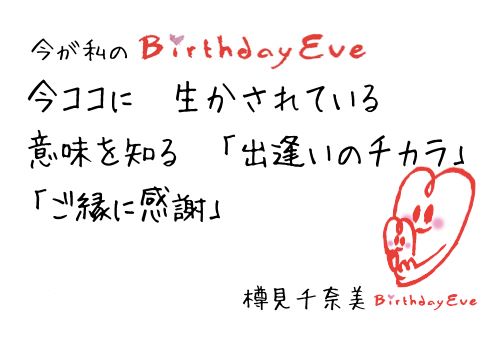 今が私の BirthdayEve
今ココに　生かされている
意味を知る　「出逢いのチカラ」
「ご縁に感謝」
樽見千奈美 BirthdayEve